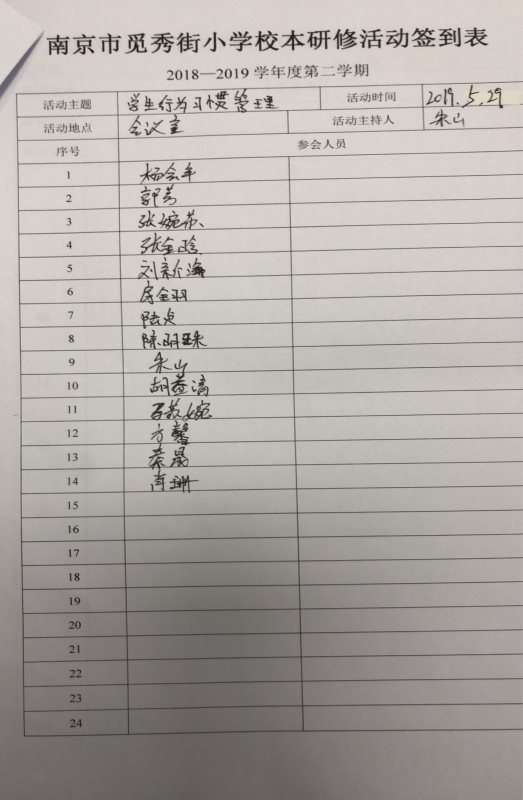 南京市觅秀街小学校本研修活动签到表
2018—2019 学年度第二学期
活动主题 学生行为习惯管理 活动时间 2019.5.29
活动地点 会议室 活动主持人 朱山
序号 参会人员
1 杨会平
2 郭芳
3 张婉莎
4 张金晗
5 刘新海
6 房金羽
7 陆贞
8 陈明珠
9 朱山
10 胡益清
11 婉
12 方馨
13 秦晟
14 肖珊
15
16
17
18
19
20
21
22
23
24